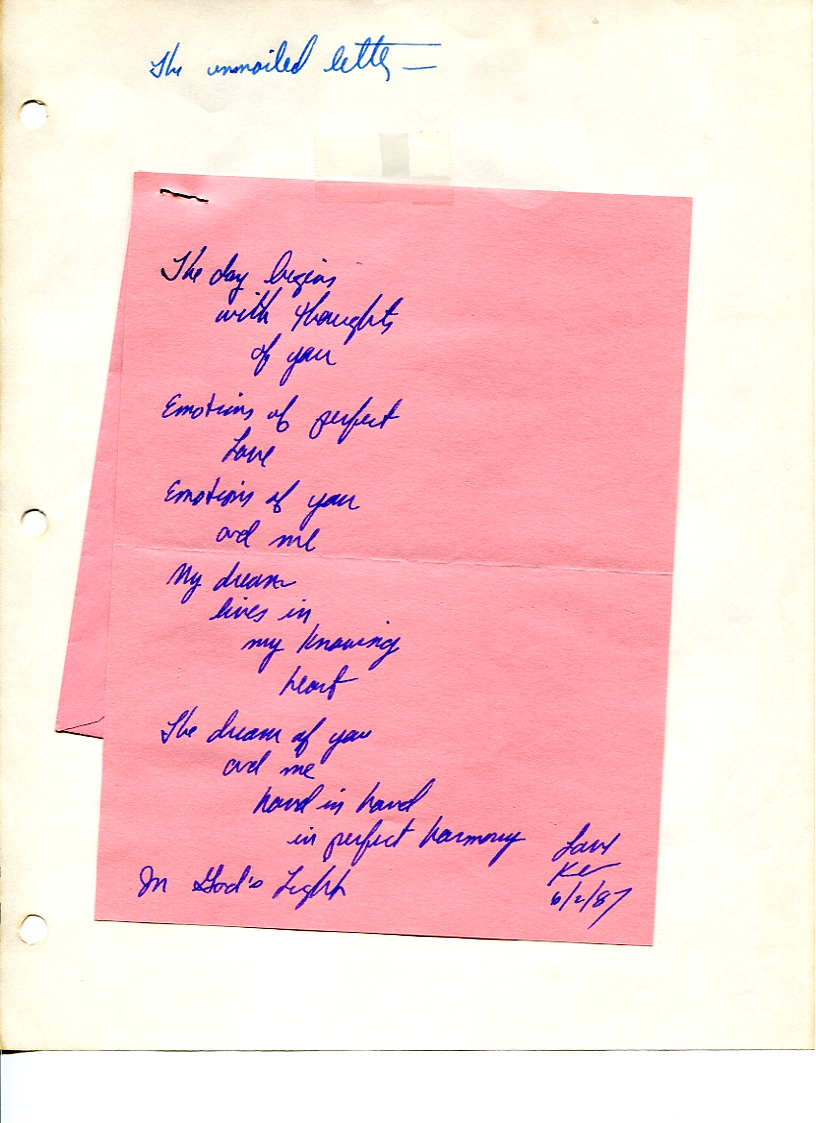 The unmailed letter —
The day begins
with thoughts
of you
Emotions of perfect
Love
Emotions of you
and me
My dream
lives in
my knowing
heart
The dream of you
and me
hand in hand
in perfect harmony
In God's Light
Love
6/2/87